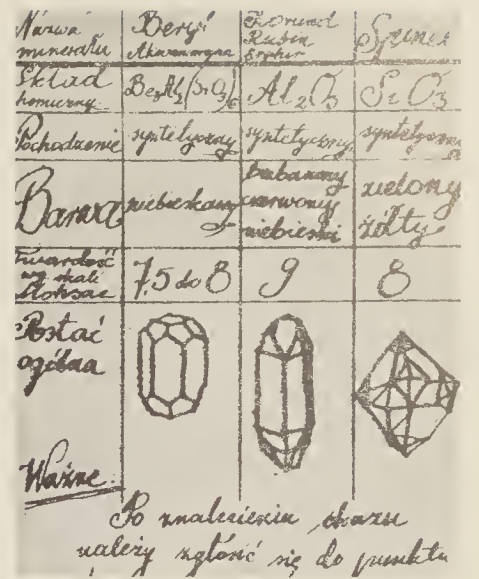 Nazwa minerału Beryl Akwamaryna Korund Rubin Szafir Spinel
Skład Be3Al2(SiO3)6 Al2O3 SiO3
Pochodzenie syntetyczny syntetyczny
Barwa niebieskawy bezbarwny czerwony niebieski zielony żółty
Twardość wg skali Mohsa 7,5 do 8 9 8
Postać ogólna
Ważne:
Po znalezieniu okazu
należy zgłosić się do punktu